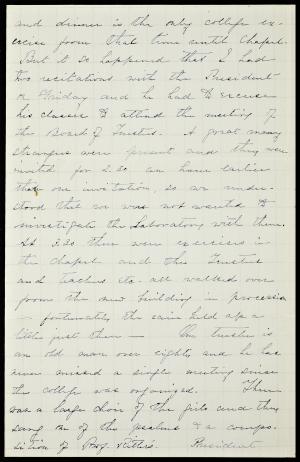 and dinner is the only college ex-
ercise from that time until Chapel.
But it so happened that I had
two recitations with the President
on Friday and he had to excuse
his classes to attend the meeting of
the Board of Trustees. A great many
strangers were present and they were
invited for 2.30 an hour earlier
than our invitation, so we under-
stood that we was not wanted to
investigate the Laboratory with them.
At 3.30 there were exercises in
the chapel and the Trustees
and teachers etc. all walked over
from the new building in procession
— fortunately the rain held up a
little just then — One trustee is
an old man over eighty and he has
never missed a single meeting since
the college was organized. There
was a large choir of the girls and they
sang one of the psalms & a compo-
sition of Prof. Ritter's. President